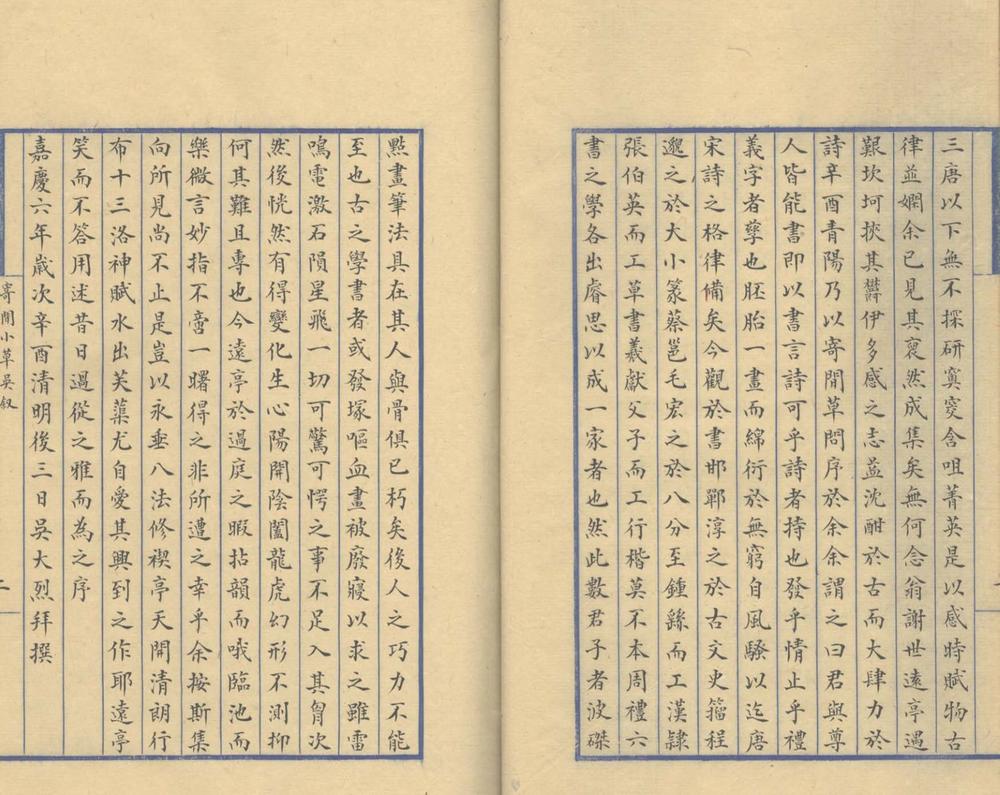 三唐以下無不探研寘窔含咀菁英是以感時賦物古
律並嫻余已見其裒然成集矣無何念翁謝世遠亭遇
艱坎坷挾其鬱伊多感之志益沈酣於古而大肆力於
詩辛酉青陽乃以寄閒草問序於余余謂之曰君與尊
人皆能書即以書言詩可乎詩者持也發乎情止乎禮
義字者孳也胚胎一畫而綿衍於無窮自風騷以迄唐
宋詩之格律備矣今觀於書邯鄲淳之於古文史籀程
邈之於大小篆蔡邕毛宏之於八分至鍾繇而工漢隸
張伯英而工草書羲獻父子而工行楷莫不本周禮六
書之學各出睿思以成一家者也然此數君子者波磔
點畫筆法具在其人與骨俱已朽矣後人之巧力不能
至也古之學書者或發塚嘔血畫被廢寢以求之雖雷
鳴電激石隕星飛一切可驚可愕之事不足入其胷次
然後恍然有得變化生心陽開陰闔龍虎幻形不測抑
何其難且專也今遠亭於過庭之暇拈韻而哦臨池而
樂微言妙指不啻一曙得之非所遭之幸乎余按斯集
向所見尚不止是豈以永垂八法修禊亭天開清朗行
布十三洛神賦水出芙蕖尤自愛其興到之作耶遠亭
笑而不答用述昔日過從之雅而為之序
嘉慶六年歲次辛酉清明後三日吳大烈拜撰
寄閒小草吳敘
二